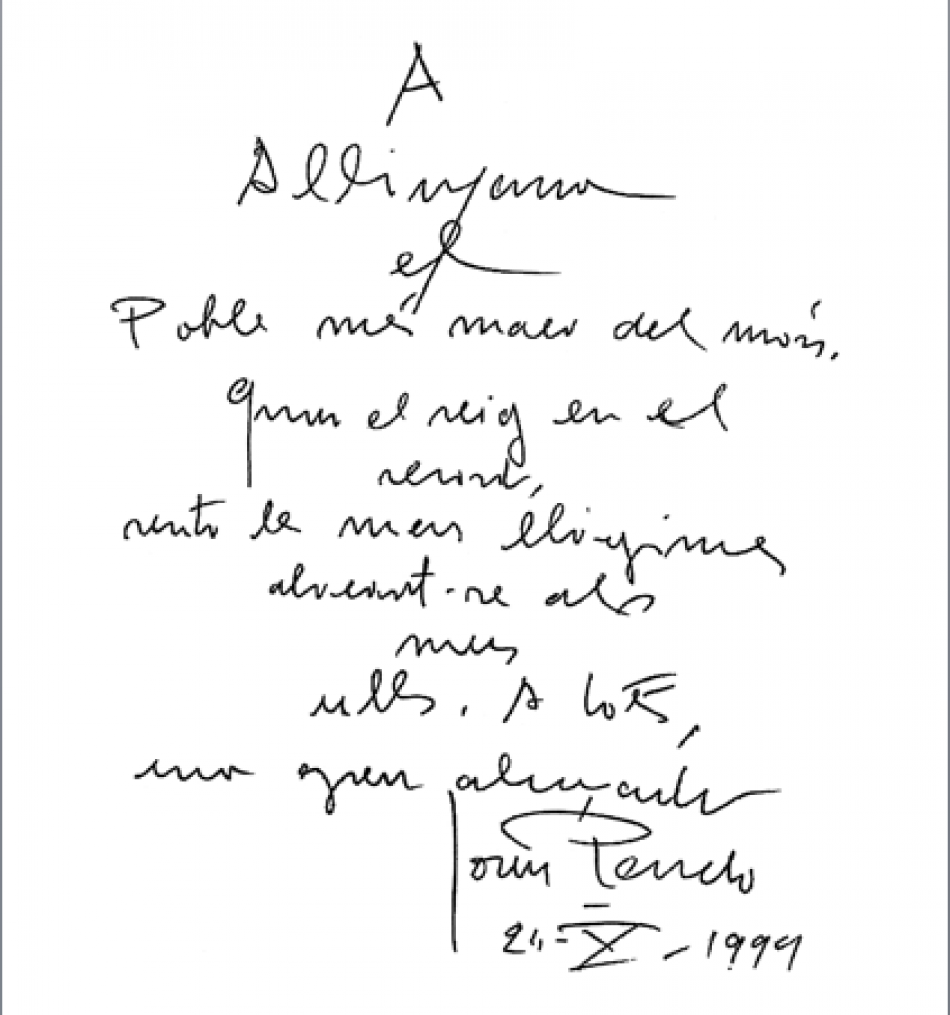 A
Allinyana
el
Poble més maco del món.
quan el veig en el
record,
sento la meva
als
meus
ulls. A tots,
una gran abraçada
Joan Pereto
21-X-1999